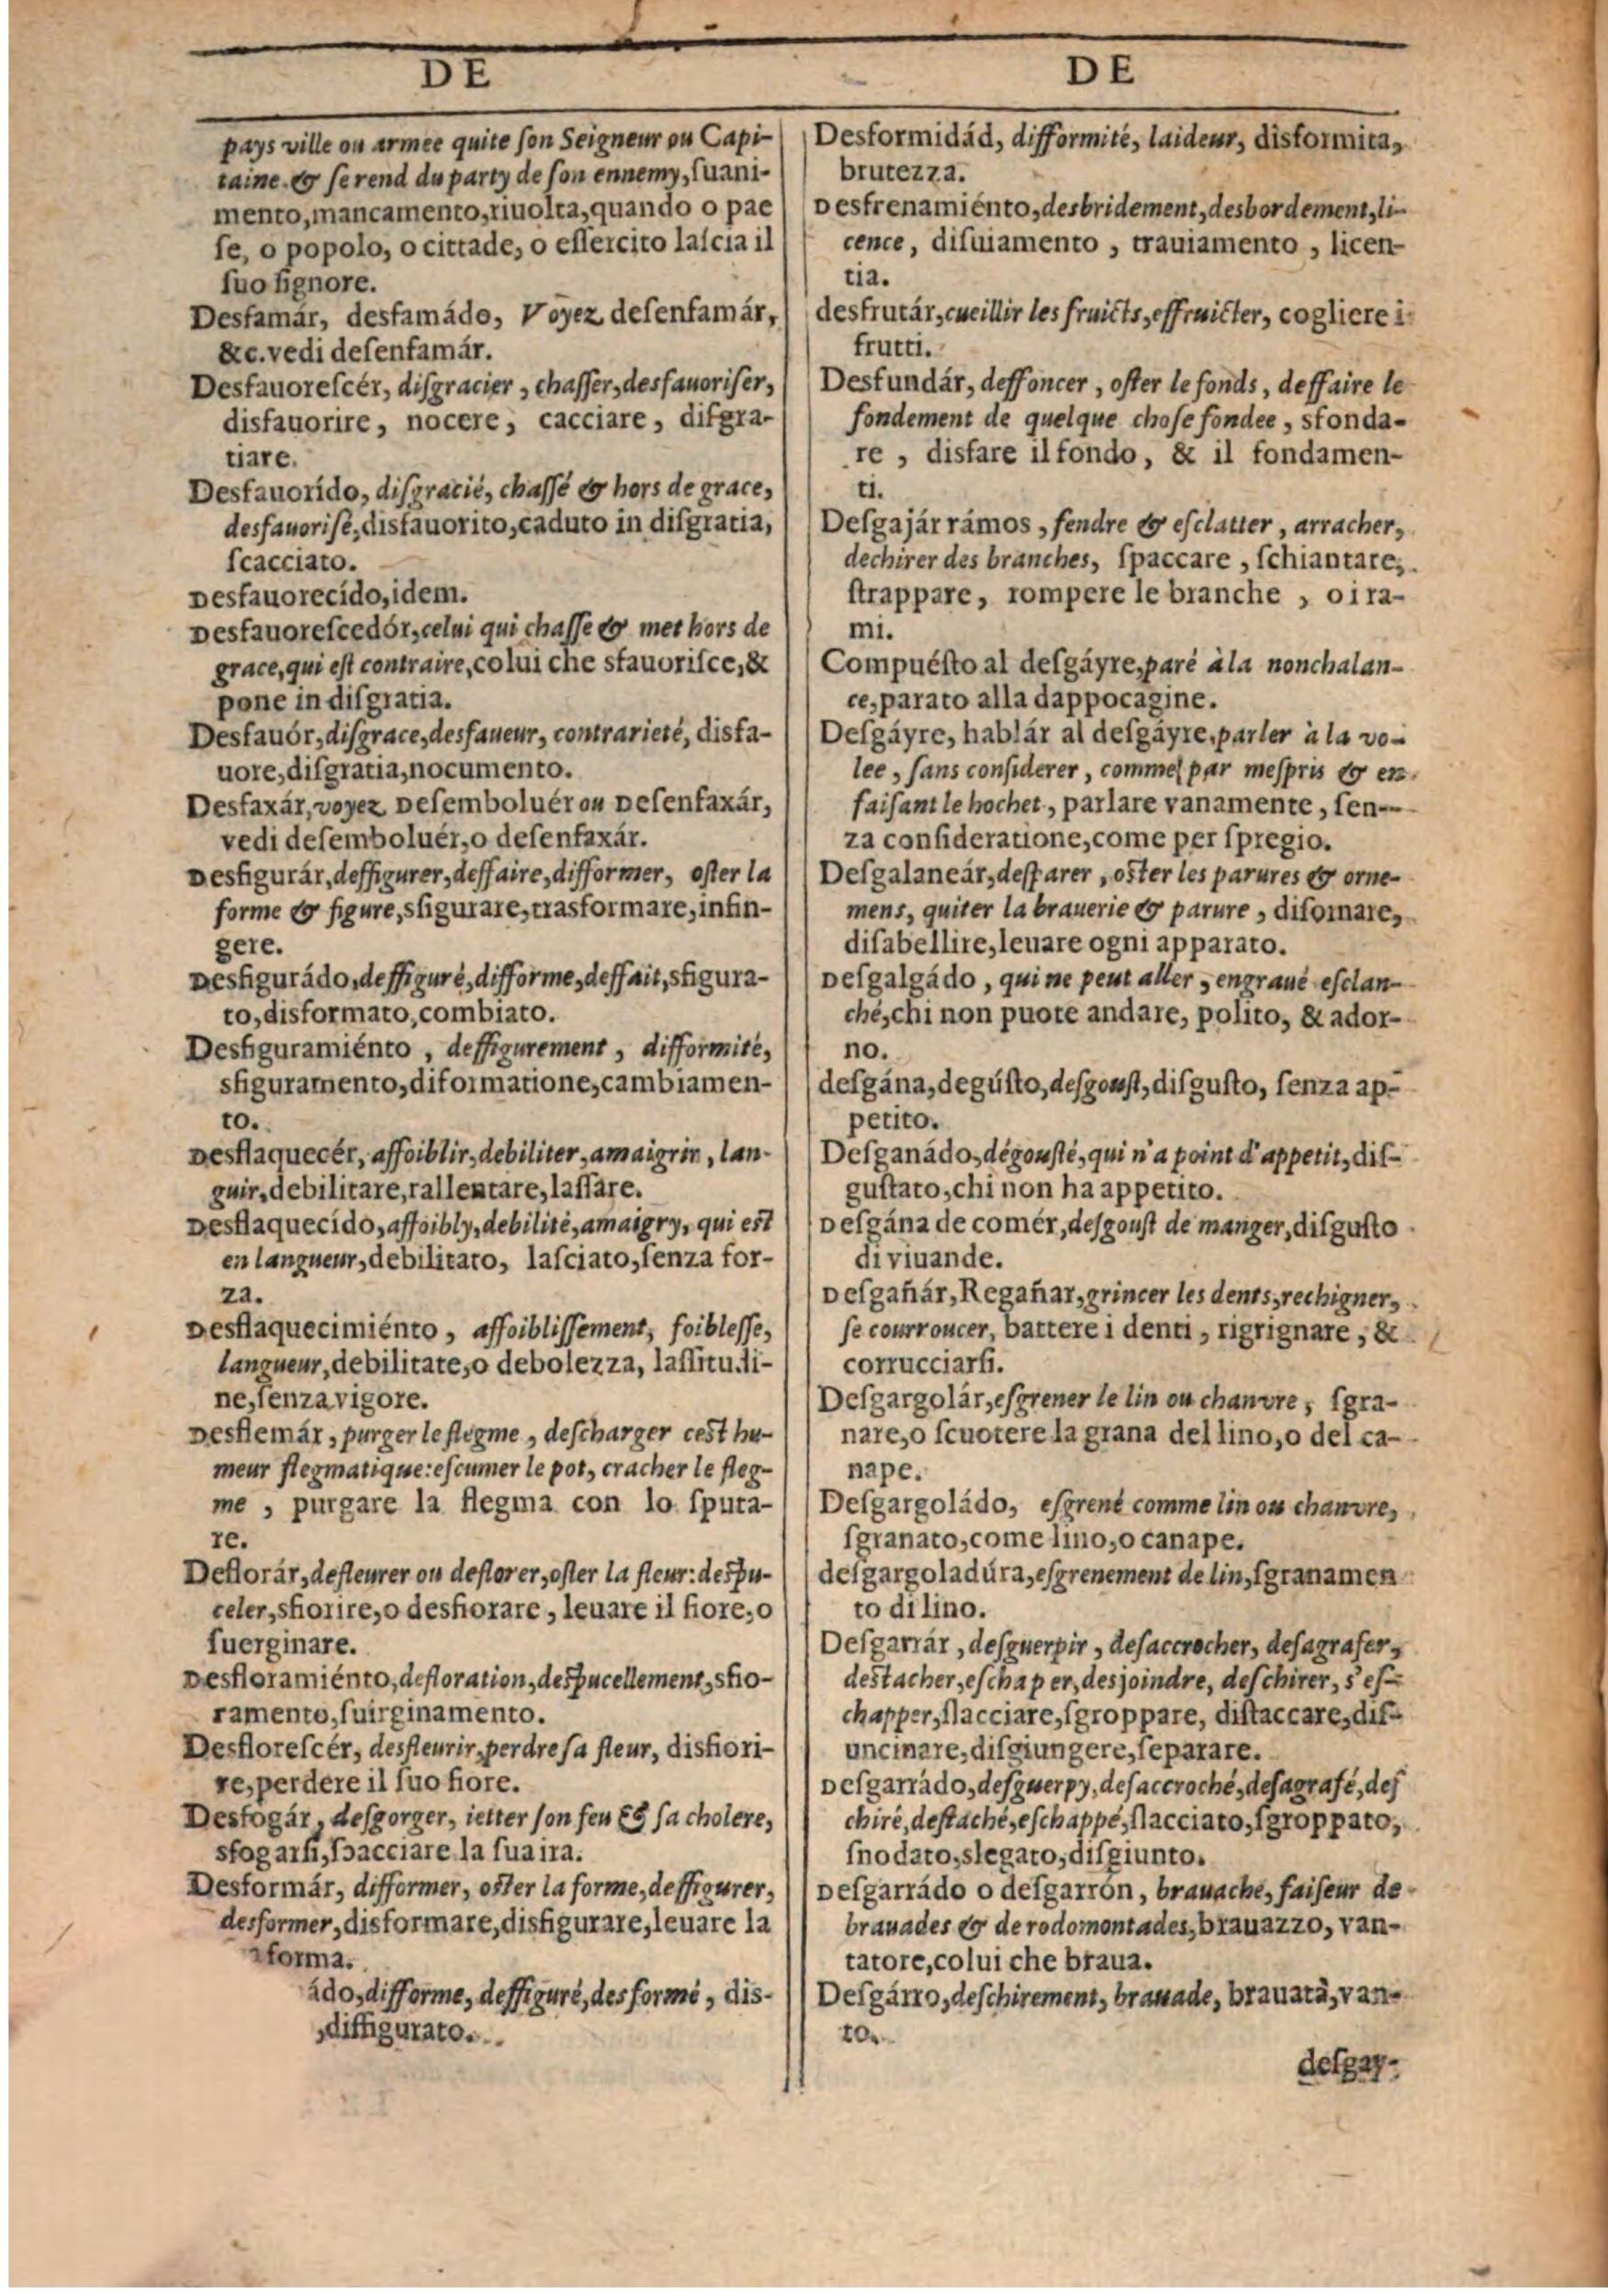 DE
pays ville ou armee quite ſon Seigneur ou Capi-
taine & ſe rend du party de ſon ennemy, ſuani-
mento, mancamento, riuolta, quando o pae
ſe, o popolo, o cittade, o eſſercito laſcia il
ſuo ſignore.
Desfamár, desfamádo, Voyez deſenfamár,
&c. vedi deſenfamár.
Desfauoreſcér, diſgracier, chaſſer, desfauoriſer,
disfauorire, nocere, cacciare, diſgra-
tiare.
Desfauorído, diſgracié, chaſſé & hors de grace,
desfauoriſé, disfauorito, caduto in diſgratia,
ſcacciato.
Desfauorecído, idem.
Desfauoreſcedór, celui qui chaſſe & met hors de
grace, qui eſt contraire, colui che sfauoriſce, &
pone in diſgratia.
Desfauór, diſgrace, desfaueur, contrarieté, disfa-
uore, diſgratia, nocumento.
Desfaxár, voyez Deſemboluér ou Deſenfaxár,
vedi deſemboluér, o deſenfaxár.
Desfigurár, deffigurer, deffaire, difformer, oſter la
forme & figure, sfigurare, trasformare, infin-
gere.
Desfigurádo, deffiguré, difforme, deffait, sfigura-
to, disformato, combiato.
Desfiguramiénto, deffigurement, difformité,
sfiguramento, diformatione, cambiamen-
to.
Desflaquecér, affoiblir, debiliter, amaigrir, lan-
guir, debilitare, rallentare, laſſare.
Desflaquecído, affoibly, debilité, amaigry, qui eſt
en langueur, debilitato, laſciato, ſenza for-
za.
Desflaquecimiénto, affoibliſſement, foibleſſe,
langueur, debilitate, o debolezza, laſſitudi-
ne, ſenza vigore.
Desflemár, purger le flegme, deſcharger ceſt hu-
meur flegmatique: eſcumer le pot, cracher le fleg-
me, purgare la flegma con lo ſputa-
re.
Deflorár, defleurer ou deflorer, oſter la fleur: deſpu-
celer, sfiorire, o desfiorare, leuare il fiore, o
ſuerginare.
Desfloramiénto, defloration, deſpucellement, sfio-
ramento, ſuirginamento.
Desfloreſcér, desfleurir, perdre ſa fleur, disfiori-
re, perdere il ſuo fiore.
Desfogár, deſgorger, ietter ſon feu & ſa cholere,
sfogarſi, ſcacciare la ſua ira.
Desformár, difformer, oſter la forme, deffigurer,
desformer, disformare, disfigurare, leuare la
forma.
ádo, difforme, deffiguré, desformé, dis-
, diffigurato.
DE
Desformidád, difformité, laideur, disformita,
brutezza.
Desfrenamiénto, desbridement, desbordement, li-
cence, diſuiamento, trauiamento, licen-
tia.
desfrutár, cueillir les fruicts, effruicter, cogliere i
frutti.
Desfundár, deffoncer, oſter le fonds, deffaire le
fondement de quelque choſe fondee, sfonda-
re, disfare il fondo, & il fondamen-
ti.
Deſgajár rámos, fendre & eſclatter, arracher,
dechirer des branches, ſpaccare, ſchiantare,
ſtrappare, rompere le branche, o i ra-
mi.
Compuéſto al deſgáyre, paré à la nonchalan-
ce, parato alla dappocagine.
Deſgáyre, hablár al deſgáyre, parler à la vo-
lee, ſans conſiderer, comme par meſpris & en
faiſant le hochet, parlare vanamente, ſen-
za conſideratione, come per ſpregio.
Deſgalaneár, deſparer, oſter les parures & orne-
mens, quiter la brauerie & parure, diſornare,
diſabellire, leuare ogni apparato.
Deſgalgádo, qui ne peut aller, engraué eſclan-
ché, chi non puote andare, polito, & ador-
no.
deſgána, degúſto, deſgouſt, diſguſto, ſenza ap-
petito.
Deſganádo, dégouſté, qui n'a point d'appetit, diſ-
guſtato, chi non ha appetito.
Deſgána de comér, deſgouſt de manger, diſguſto
di viuande.
Deſgañár, Regañar, grincer les dents, rechigner,
ſe courroucer, battere i denti, rigrignare, &
corrucciarſi.
Deſgargolár, eſgrener le lin ou chanvre, ſgra-
nare, o ſcuotere la grana del lino, o del ca-
nape.
Deſgargoládo, eſgrené comme lin ou chanvre,
ſgranato, come lino, o canape.
deſgargoladúra, eſgrenement de lin, ſgranamen
to di lino.
Deſgarrár, deſguerpir, deſaccrocher, deſagrafer,
deſtacher, eſchaper, desjoindre, deſchirer, s'eſ-
chapper, ſlacciare, ſgroppare, diſtaccare, diſ-
uncinare, diſgiungere, ſeparare.
Deſgarrádo, deſguerpy, deſaccroché, deſagrafé, deſ
chiré, deſtaché, eſchappé, ſlacciato, ſgroppato,
ſnodato, slegato, diſgiunto.
Deſgarrádo o deſgarrón, brauache, faiſeur de
brauades & de rodomontades, brauazzo, van-
tatore, colui che braua.
Deſgárro, deſchirement, brauade, brauatà, van-
to.
deſgay-